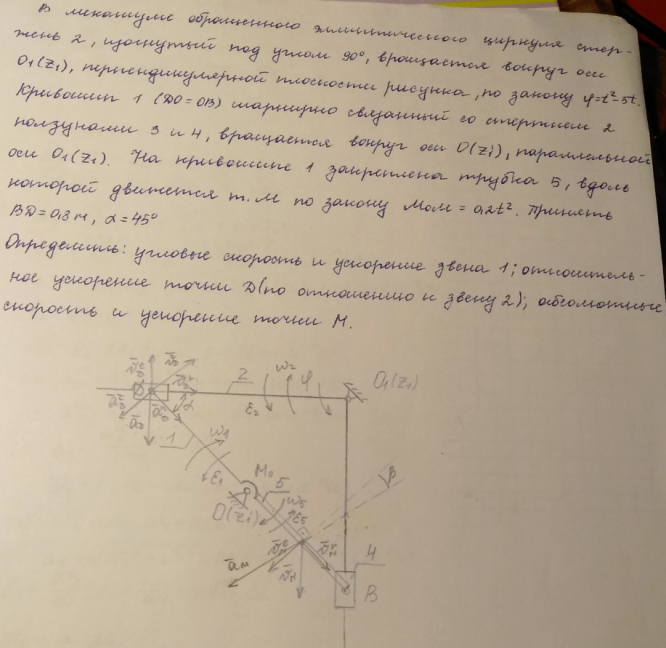 В механизме обращенного эллиптического циркуля стер-
жень 2, изогнутый под углом 90°, вращается вокруг оси
O₁(z₁), перпендикулярной плоскости рисунка, по закону φ=t²-5t.
Кривошип 1 (DO=OB) шарнирно связанный со стержнем 2
ползунами 3 и 4, вращается вокруг оси O(z), параллельной
оси O₁(z₁). На кривошипе 1 закреплена трубка 5, вдоль
которой движется т. М по закону M₀M = 0,2t². Принять
BD=0,8 м, α=45°
Определить: угловые скорость и ускорение звена 1; относитель-
ное ускорение точки D (по отношению к звену 2); абсолютные
скорость и ускорение точки М.
2
O₁(z₁)
ω₂
φ
ε₂
α
1
ω₁
ε₁
M₀
5
ω₅
ε₅
O(z)
β
4
B